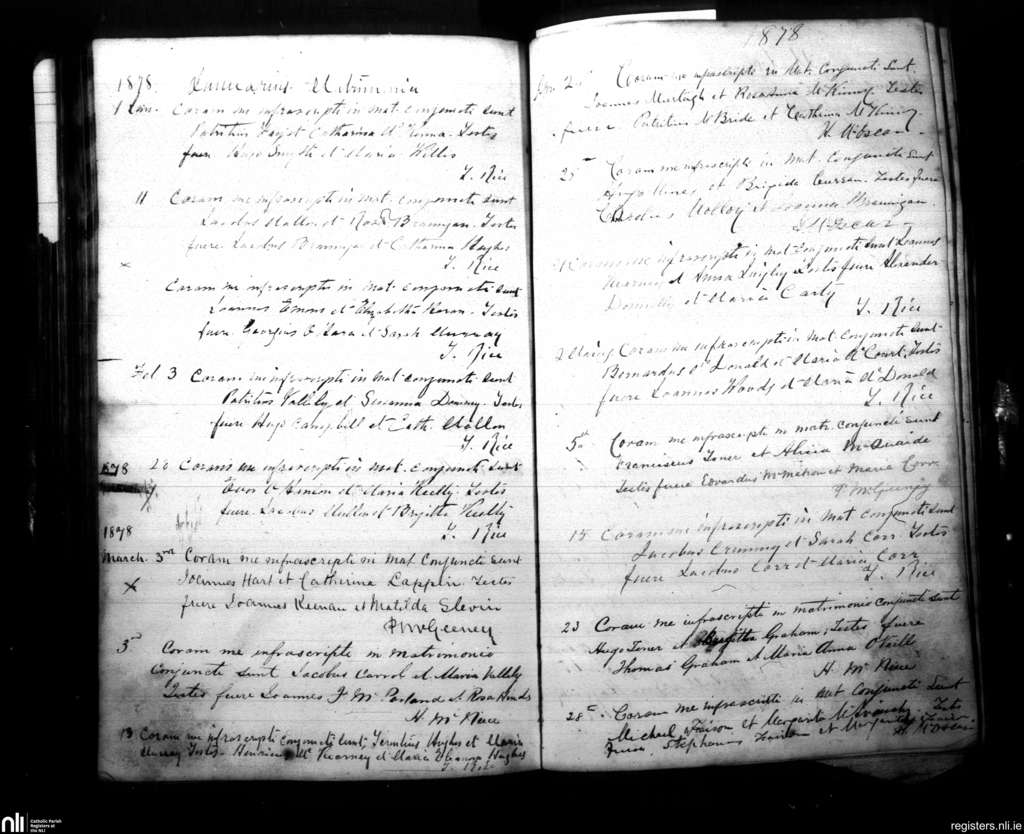 1878 Januarius Matrimonia
1 Jan. Coram me infrascripto in mat. conjuncti sunt
Patritius et Catharina Testes
fuere Hugo Smyth et Maria Willis
T. Rice
11 Coram me infrascripto in mat. conjuncti sunt
Jacobus Mallon et Rosa Branigan. Testes
fuere Jacobus Branigan et Catharina Hughes
T. Rice
Coram me infrascripto in mat. conjuncti sunt
Joannes Emons et Elizabetha Testes
fuere Georgius O'Hara et Sarah Murray
T. Rice
Feb 3 Coram me infrascripto in mat. conjuncti sunt
Patritius Vallely et Susanna Testes
fuere Hugo Campbell et Cath. Mallon
T. Rice
1878 20 Coram me infrascripto in mat. conjuncti sunt
et Maria Reilly. Testes
fuere Jacobus Mullen et Brigitta Reilly
T. Rice
1878
March. 3rd Coram me infrascripti in Mat Conjuncti sunt
X Joannes Hart et Catherina Lappin. Testes
fuere Joannes Keenan et Matilda Slevin
P McGeeney
5th Coram me infrascripto in matrimonio
Conjuncti Sunt Jacobus Carrol et Maria Vallely
Testes fuere Joannes J Mc Parland et Rosa
H. McNeece
13 Coram me infrascripti conjuncti sunt, Terentius Hughes et Maria
Murray Testes Henricus Mc Kearney et Maria Eleanora Hughes
T. Rice
1878
Coram me infrascripto in Mat. Conjuncti Sunt
Joannes Murtagh et Rosanna McKinney. Testes
fuere Patritius McBride et Catherina McKinney
H. McOscar
25th Coram me infrascripto in Mat. Conjuncti Sunt
Hugo Hines et Brigida Curran. Testes fuere
Molloy et Joanna Brannigan.
McOscar
Coram me infrascripto in mat. conjuncti sunt Joannes
Kearney et Anna Quigley Testes fuere Alexander
Donnelly et Maria Carty
T. Rice
Coram me infrascripto in mat conjuncti sunt
Bernardus McDonald et Maria McCourt, Testes
fuere Joannes Woods et Maria McDonald
T. Rice
5th Coram me infrascripto in matr. conjuncti sunt
Franciscus Toner et Alicia McQuaide
Testes fuere Edvardus McMahon et Maria Corr
P. McGeeney
15 Coram me infrascripti in mat conjuncti sunt
Jacobus Cremmy et Sarah Corr. Testes
fuere Jacobus Corr et Maria Corr
T. Rice
23 Coram me infrascripto in matrimonio conjuncti sunt
Hugo Toner et Brigitta Graham, Testes fuere
Thomas Graham et Maria Anna O'Neill
H. McNeece
28th Coram me infrascripto in Mat Conjuncti Sunt
Michael et Margarita Testes
fuere, Stephanus et Margarita
H. McOscar
nli
Catholic Parish
Registers at
the NLI
registers.nli.ie